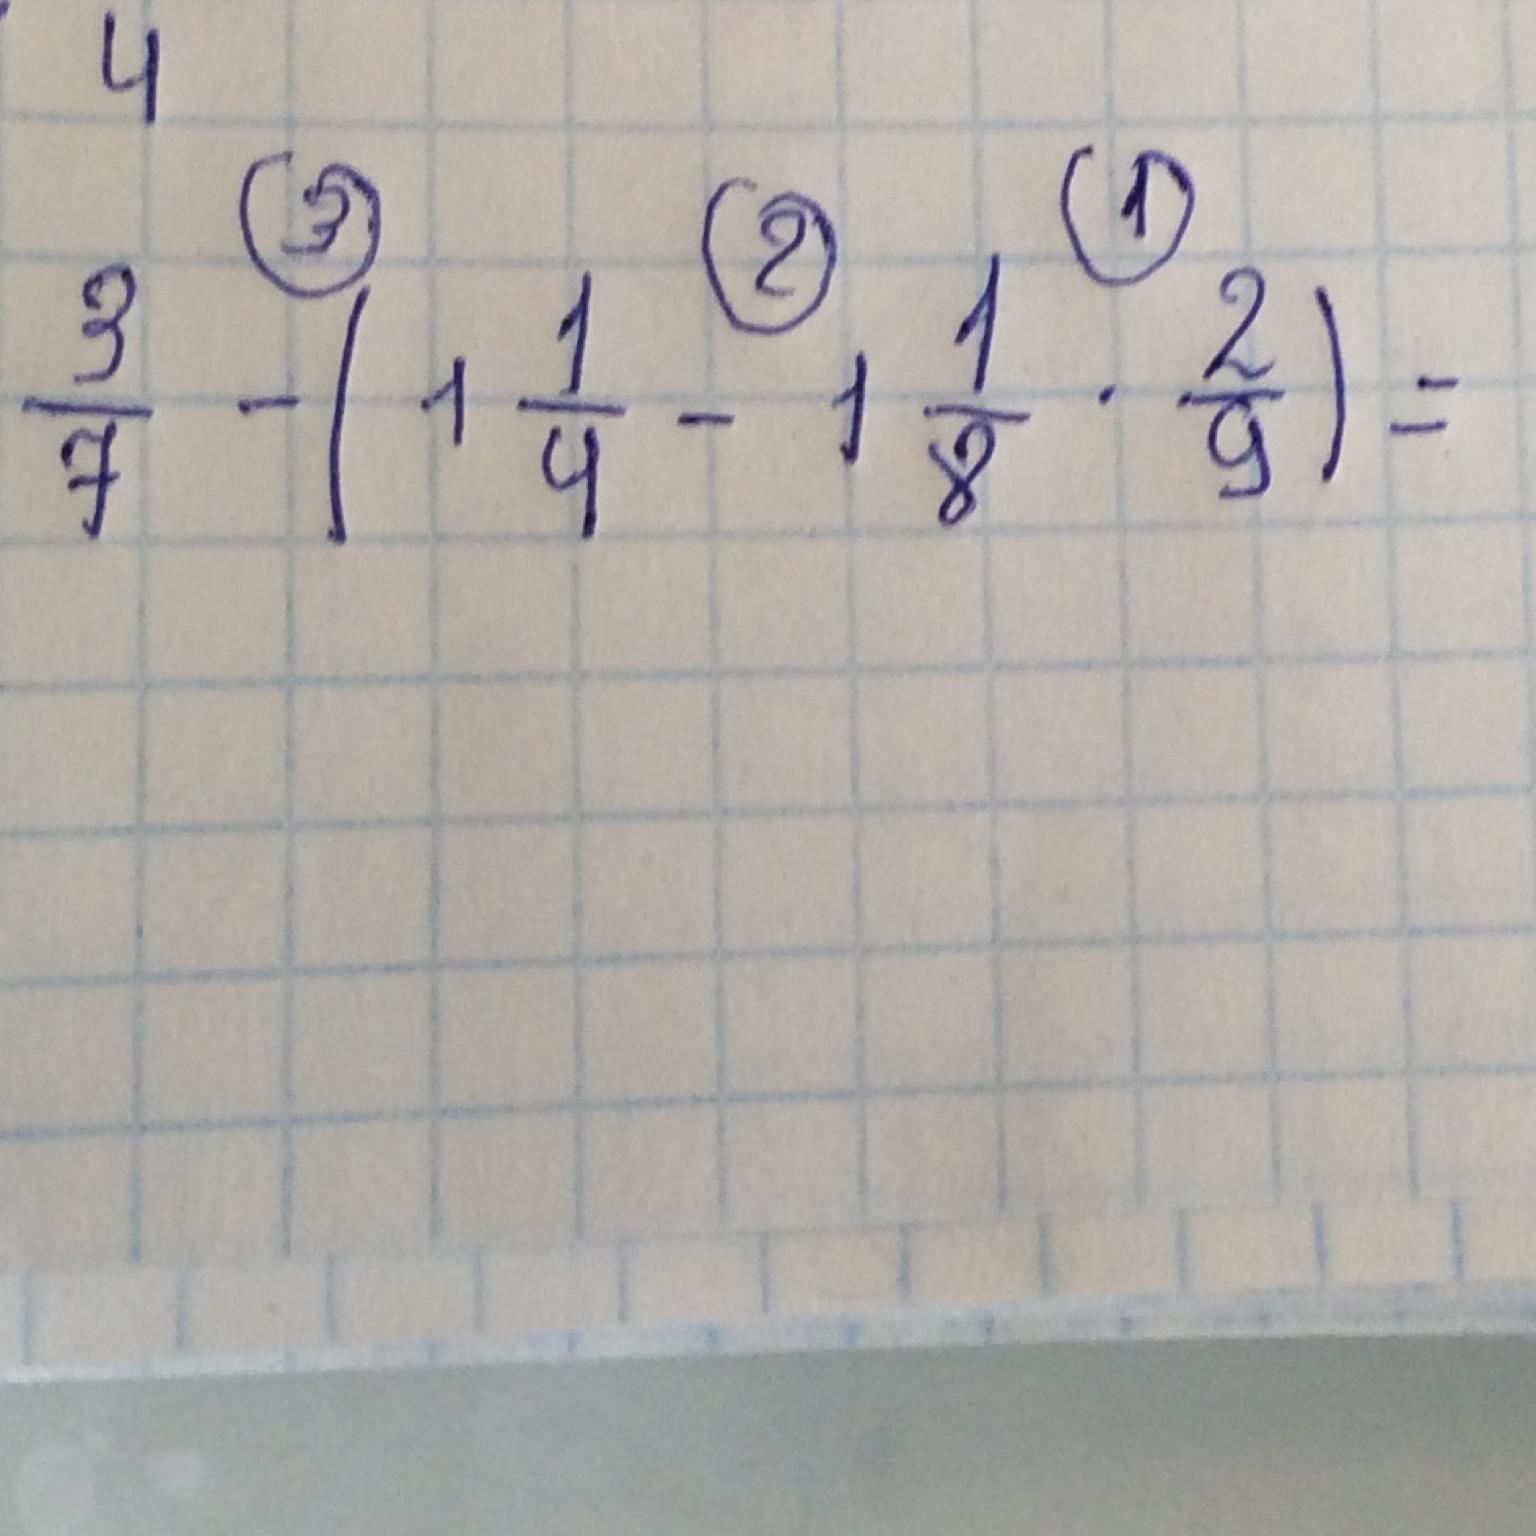 4
③ ② ①
3/7 - (1 1/4 - 1 1/8 · 2/9) =